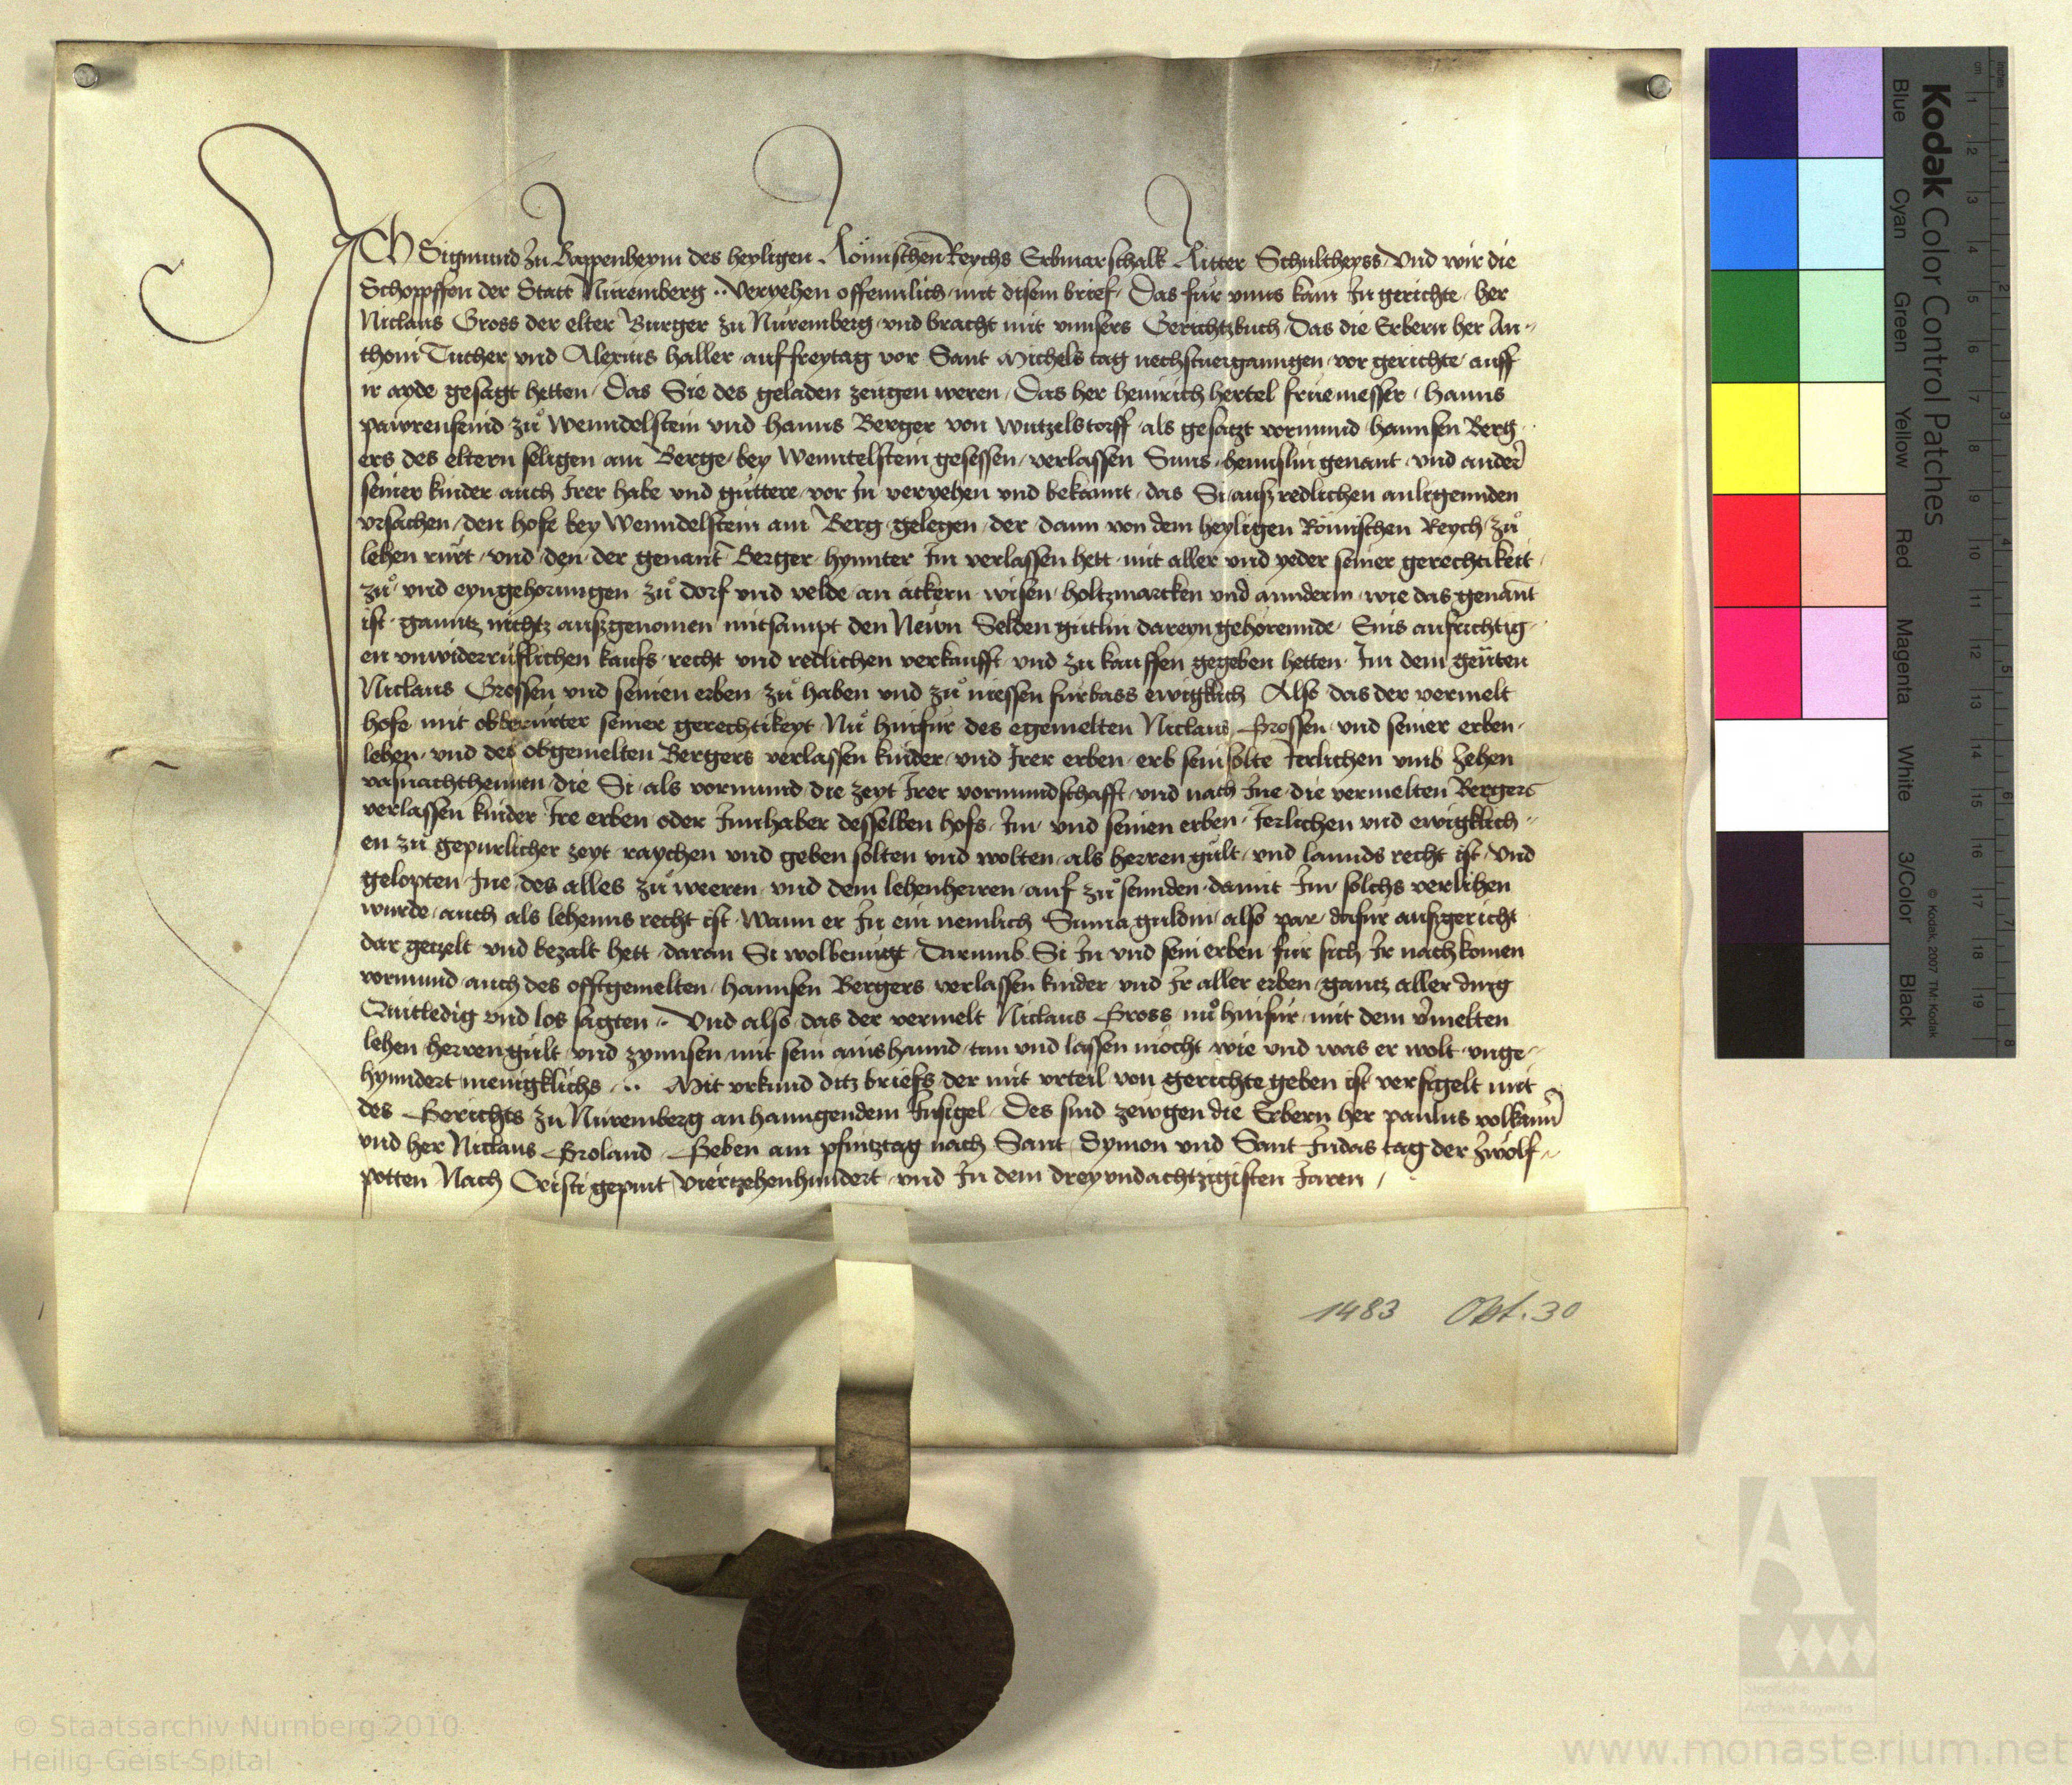 ICH Sigmund zu Bappenheym des heyligen Römischen Reychs Erbmarschalk Ritter Schultheyss Vnd wir die
Schopffen der Statt Nuremberg ·· Veryehen offennlich mit disem brief Das für vnns kam In gerichte her
Niclaus Gross der elter Burger zu Nüremberg vnd bracht mit vnnsers Gerichtzbuch Das die Erbern her An-
thoni Tucher vnd Alexius haller auf freytag vor Sant Michels tag nechstuergangen vor gerichte auff
ir ayde gesagt hetten Das Sie des geladen zeugen weren Das her heinrich hertel frümesser hanns
pawrenfeind zů Wenndelstein vnd hanns Berger von Wutzelstorff als gesatzt vormund hannsen Berg-
ers des eltern seligen am Berge bey Wenntelstein gesessen verlassen Suns hennslin genant vnd ander
seiner kinder auch Irer habe vnd güttere vor In veryehen vnd bekannt das Si auß redlichen anligennden
vrsachen den hofe bey Wenndelstein am Berg gelegen der dann von dem heyligen Römischen Reych zů
lehen rürt vnd den der genant Berger hynnter Im verlassen hett mit aller vnd yeder seiner gerechtikeit
zů vnd eyngehorungen zů dorf vnd velde an äckern wisen holtzmarcken vnd annderm wie das genant
ist ganntz nichtz außgenomen mitsampt den Newn Selden gütlin dareyn gehörennde Eins aufrichtig-
en vnwiderrüflichen kaufs recht vnd redlichen verkaufft vnd zu kauffen gegeben hetten Im dem genten
Niclaus Grossen vnd seinen erben zů haben vnd zů niessen fürbass ewigklich Also das der vermelt
hofe mit obberürter seiner gerechtikeyt Nů hinfür des egemelten Niclaus Grossen vnd seiner erben
lehen vnd des obgemelten Bergers verlassen kinder vnd Irer erben erb sein solte Ierlichen vmb Zehen
vasnachthennen die Si als vormund die zeyt Irer vormundschafft vnd nach Ine die vermelten Bergers
verlassen kinder Ire erben oder Innhaber desselben hofs Im vnd seinen erben Ierlichen vnd ewigklich-
en zu gepürlicher zeyt raychen vnd geben solten vnd wolten als herren gült vnd lannds recht ist Vnd
gelopten Ine des alles zů weeren vnd dem lehenherren auf zů sennden damit Im solchs verlihen
wurde auch als lehenns recht ist Wann er In ein nemlich Suma guldin also par dafür außgericht
dar getzelt vnd bezalt hett daran Si wolbenügt Darumb Si In vnd sein erben für sich Ir nachkomen
vormund auch des offtgemelten hannsen Bergers verlassen kinder vnd Ir aller erben gantz aller ding
Quittledig vnd los sagten ·· Vnd also das der vermelt Niclaus Gross nů hinfür mit dem vermelten
lehen herren gült vnd zynnsen mit sein ainshannd tun vnd lassen möcht wie vnd was er wolt vnge-
hynndert menigklichs ·· Mit vrkund ditz briefs der mit vrteil von gerichte geben ist versigelt mit
des Gerichts zu Nüremberg anhanngendem Insigel Des sind zewgen die Erbern her paulus volkamer
vnd her Niclaus Groland Geben am pfintztag nach Sant Symon vnd Sant Iudas tag der zwölf-
potten Nach Cristi gepurt Viertzehenhundert vnd In dem dreyvndachtzigisten Jaren
1483 Okt. 30
Kodak Color Control Patches
Blue Cyan Green Yellow Red Magenta White 3/Color Black
© Kodak, 2007 TM: Kodak
cm 1 2 3 4 5 6 7 8 9 10 11 12 13 14 15 16 17 18 19
inches 1 2 3 4 5 6 7 8
Staatliche
Archive Bayerns
© Staatsarchiv Nürnberg 2010
Heilig-Geist-Spital
www.monasterium.net